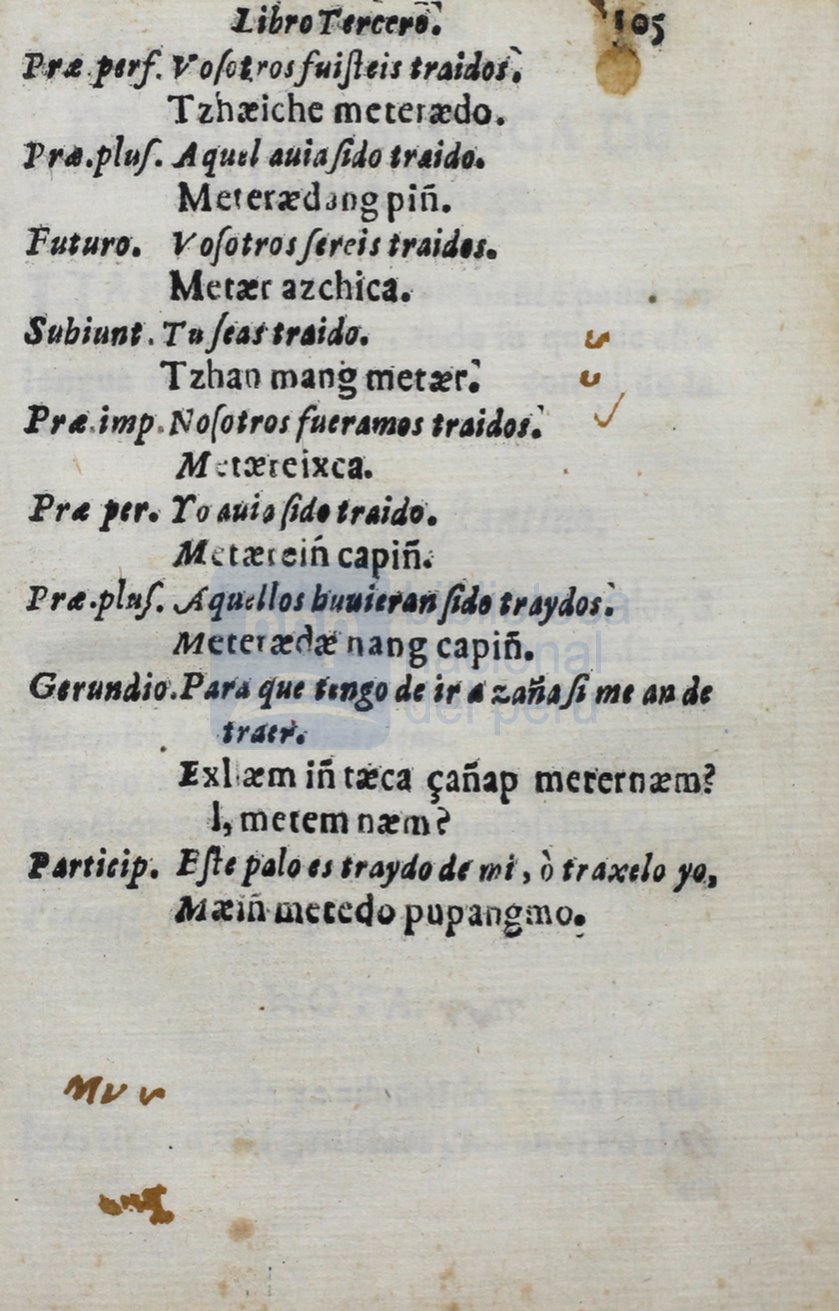 Libro Tercero. 105
Præ perf. Voſotros fuiſteis traidos.
Tzhæiche meterædo.
Præ.pluſ. Aquel auia ſido traido.
Meterædang piñ.
Futuro. Voſotros ſereis traidos.
Metær azchica.
Subiunt. Tu ſeas traido.
Tzhan mang metær.
Præ.imp. Noſotros fueramos traidos.
Metæreixca.
Præ per. Yo auia ſido traido.
Metærein capiñ.
Præ.pluſ. Aquellos huuieran ſido traydos.
Meterædæ nang capiñ.
Gerundio. Para que tengo de ir a zaña ſi me an de
traer.
æm iñ tæca çañap meternæm?
l, metem næm?
Particip. Eſte palo es traydo de mi, ò traxelo yo,
Mæiñ metedo pupangmo.
biblioteca
nacional
del perú